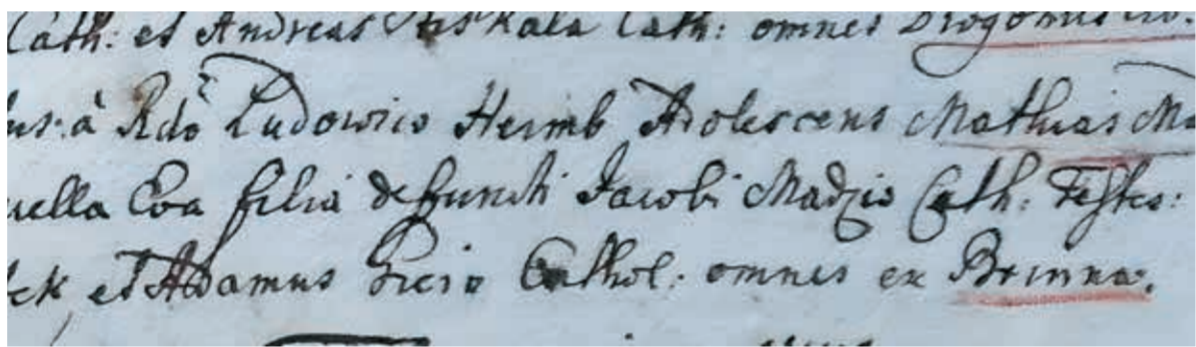 Cath: et Andreas Kala Cath: omnes Drogomis
us: à Rdō Ludowico Heimb Adolescens Mathias Ma
uella Eva filia defuncti Jacobi Madzia Cath: Testes:
ek et Adamus Grein Cathol: omnes ex Brenna.